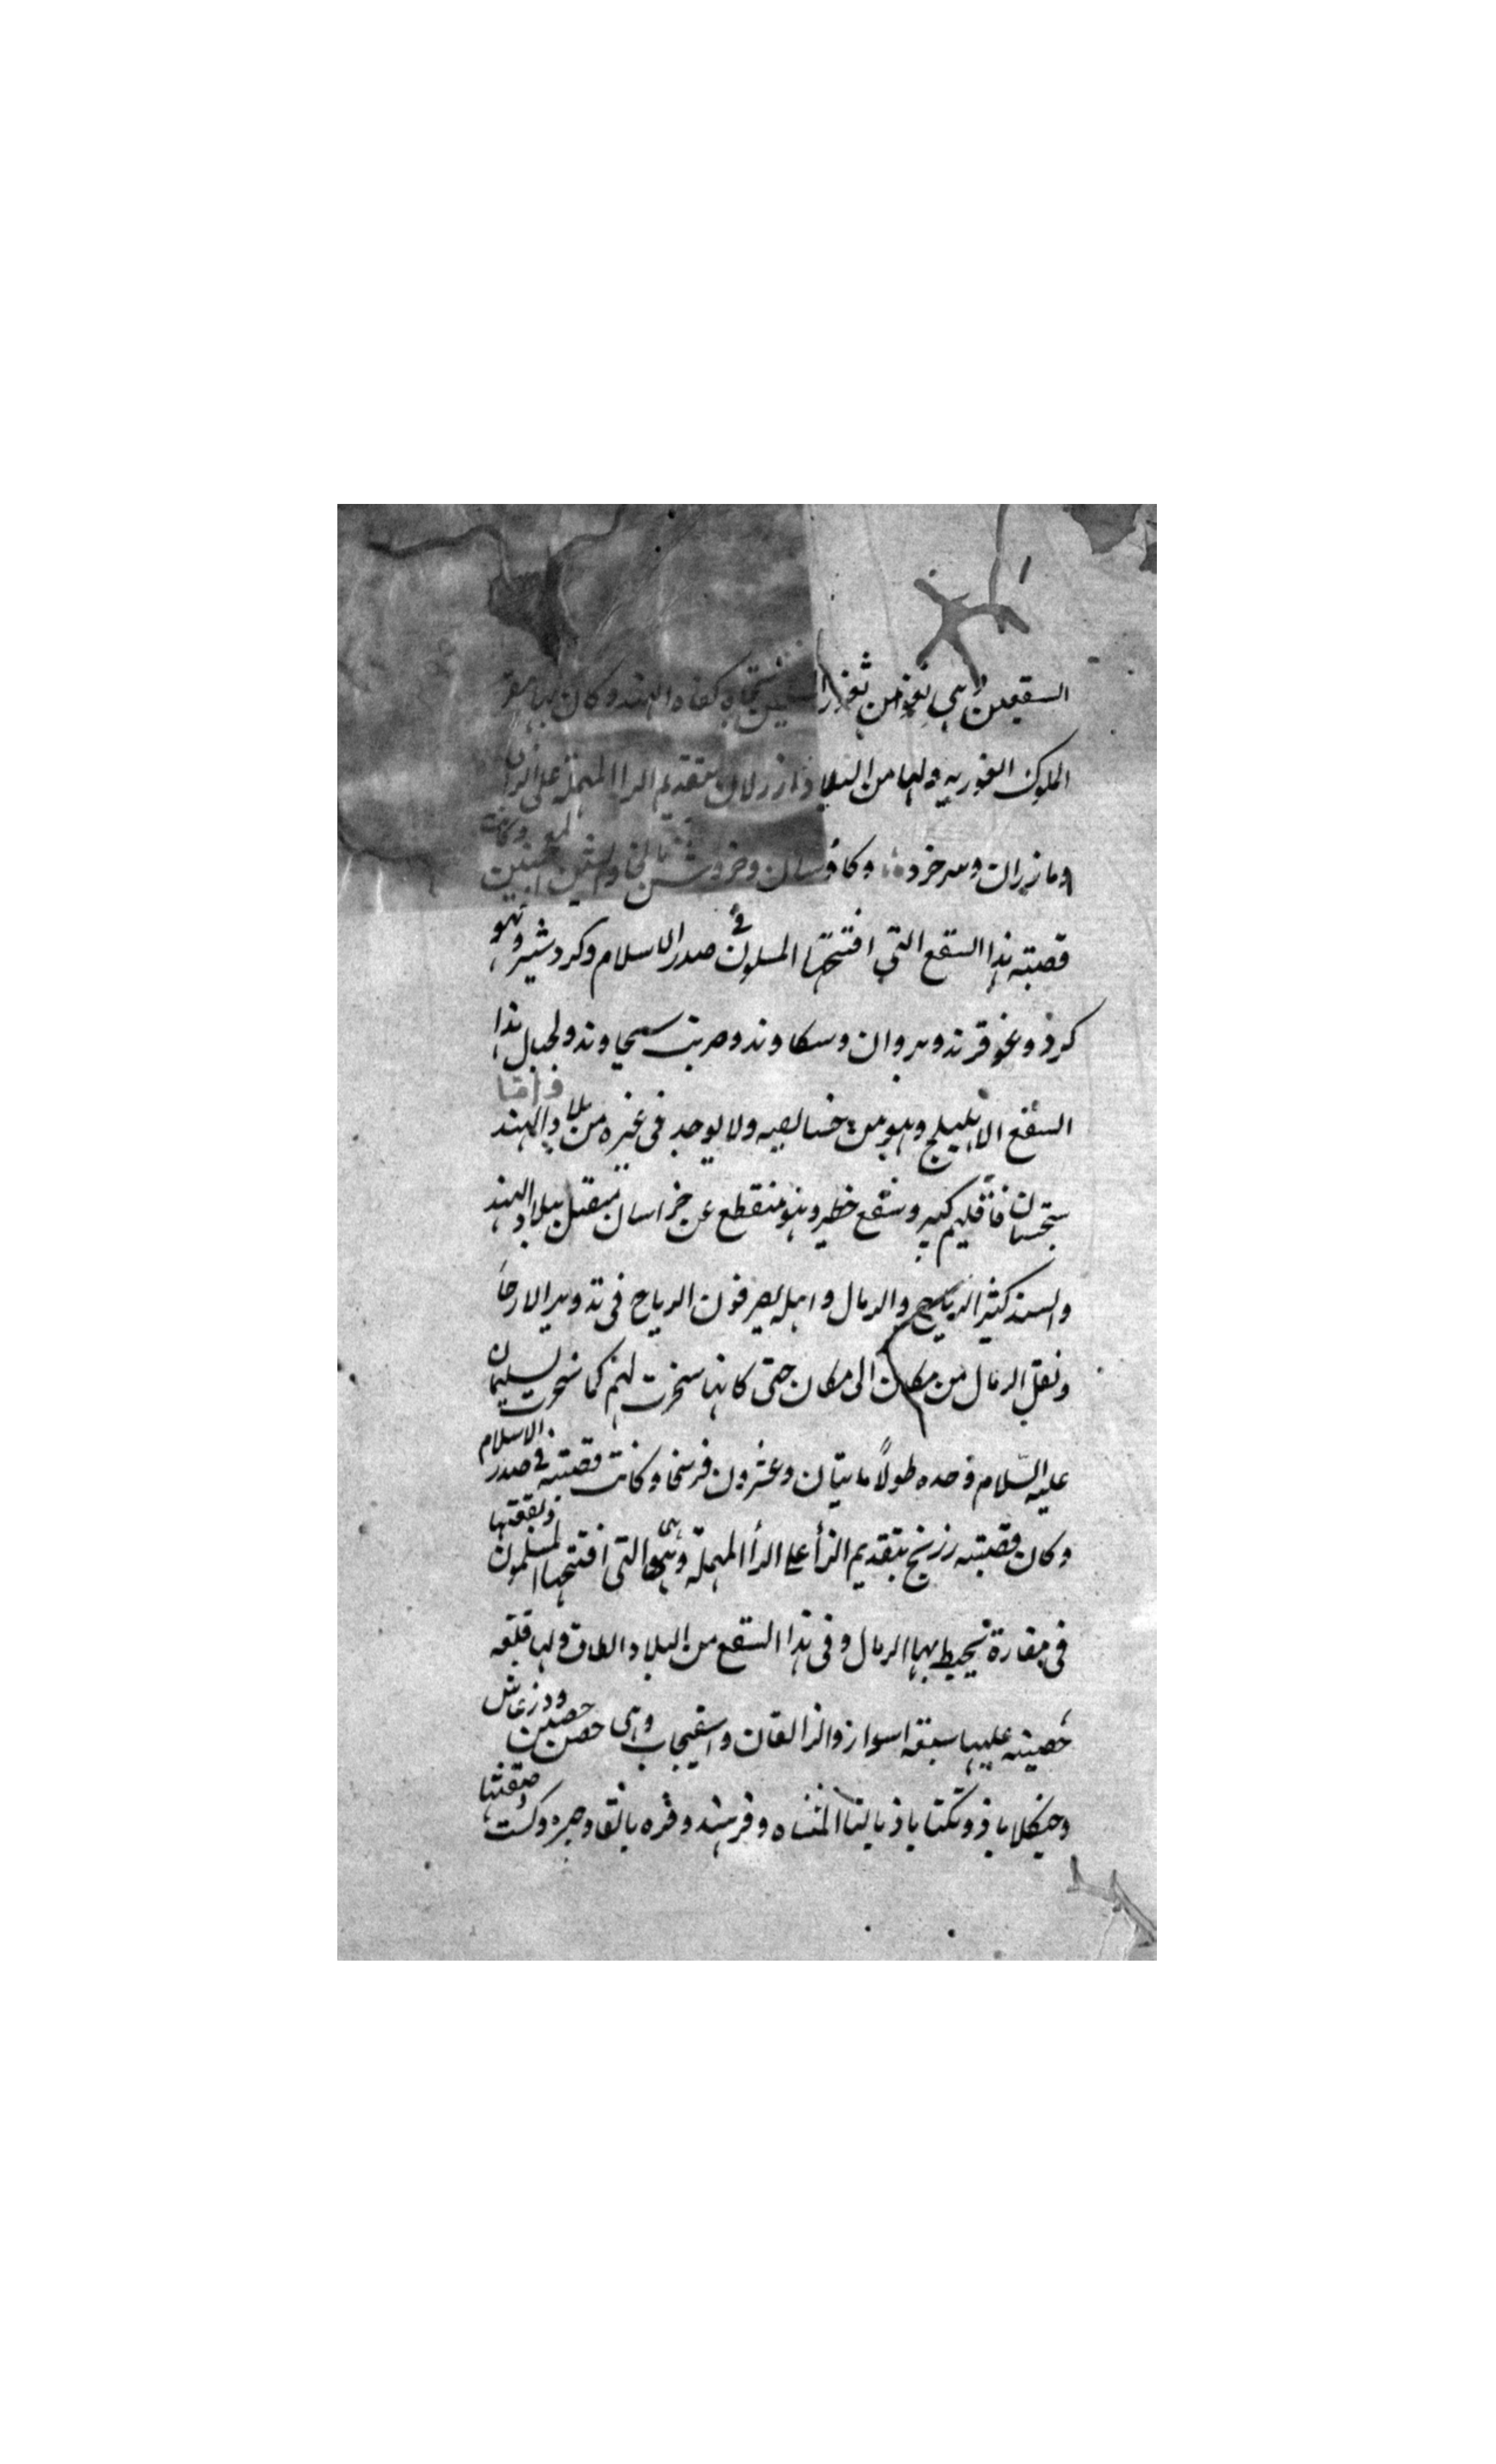 السقعين وهي ثغر من ثغور المسلمين تجاه كفاه الهند وكان بها مقر
الملوك الغوريه ولها من البلاد ازرلان بتقديم الرا المهملة على الزاى
ومازران وسرخرد وكاوسان وخروش
قصبته هذا السقع التي افتتحها المسلمون في صدر الاسلام وكردشير وتهو
كرد وغو قرند وبروان وسكاوند وحربت سيحاوند ولجبال هذا
السقع الاهليلج وهو من خصايصه ولا يوجد في غيره من بلاد الهند واما
سجستان فاقليم كبير وسقع خطير وهو منقطع عن خراسان متصل ببلاد الهند
والسند كثير الرياح والرمال واهله يصرفون الرياح في تدوير الارحا
ونقل الرمال من مكان الى مكان حتى كانها سخرت لهم كما سخرت لسليمان
عليه السلام وحده طولاً مايتان وعشرون فرسخا وكانت قصبته في صدر الاسلام
وكان قصبته زرنج بتقديم الزأ على الرأ المهملة وهي التي افتتحها المسلمون وبقعتها
في مفازة تحيط بها الرمال وفي هذا السقع من البلاد الطاق ولها قلعه
حصينه عليها سبعه اسوار والزالقان واسفيجاب وهى حصن حصين ودزعاش
وحنكلاباذ وتكناباذ بالتا المثناه وفرهند وفره بالفا وجره وكست وصقنثا